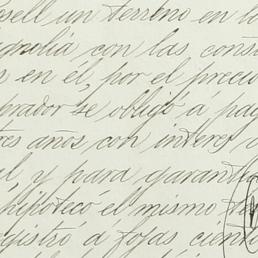 sell un terreno en la
con las cons
s en él, por el precio
prador se obligó á pag
res años con interes a
al y para garanti
hipotecó el mismo
gistró a fojas ciento